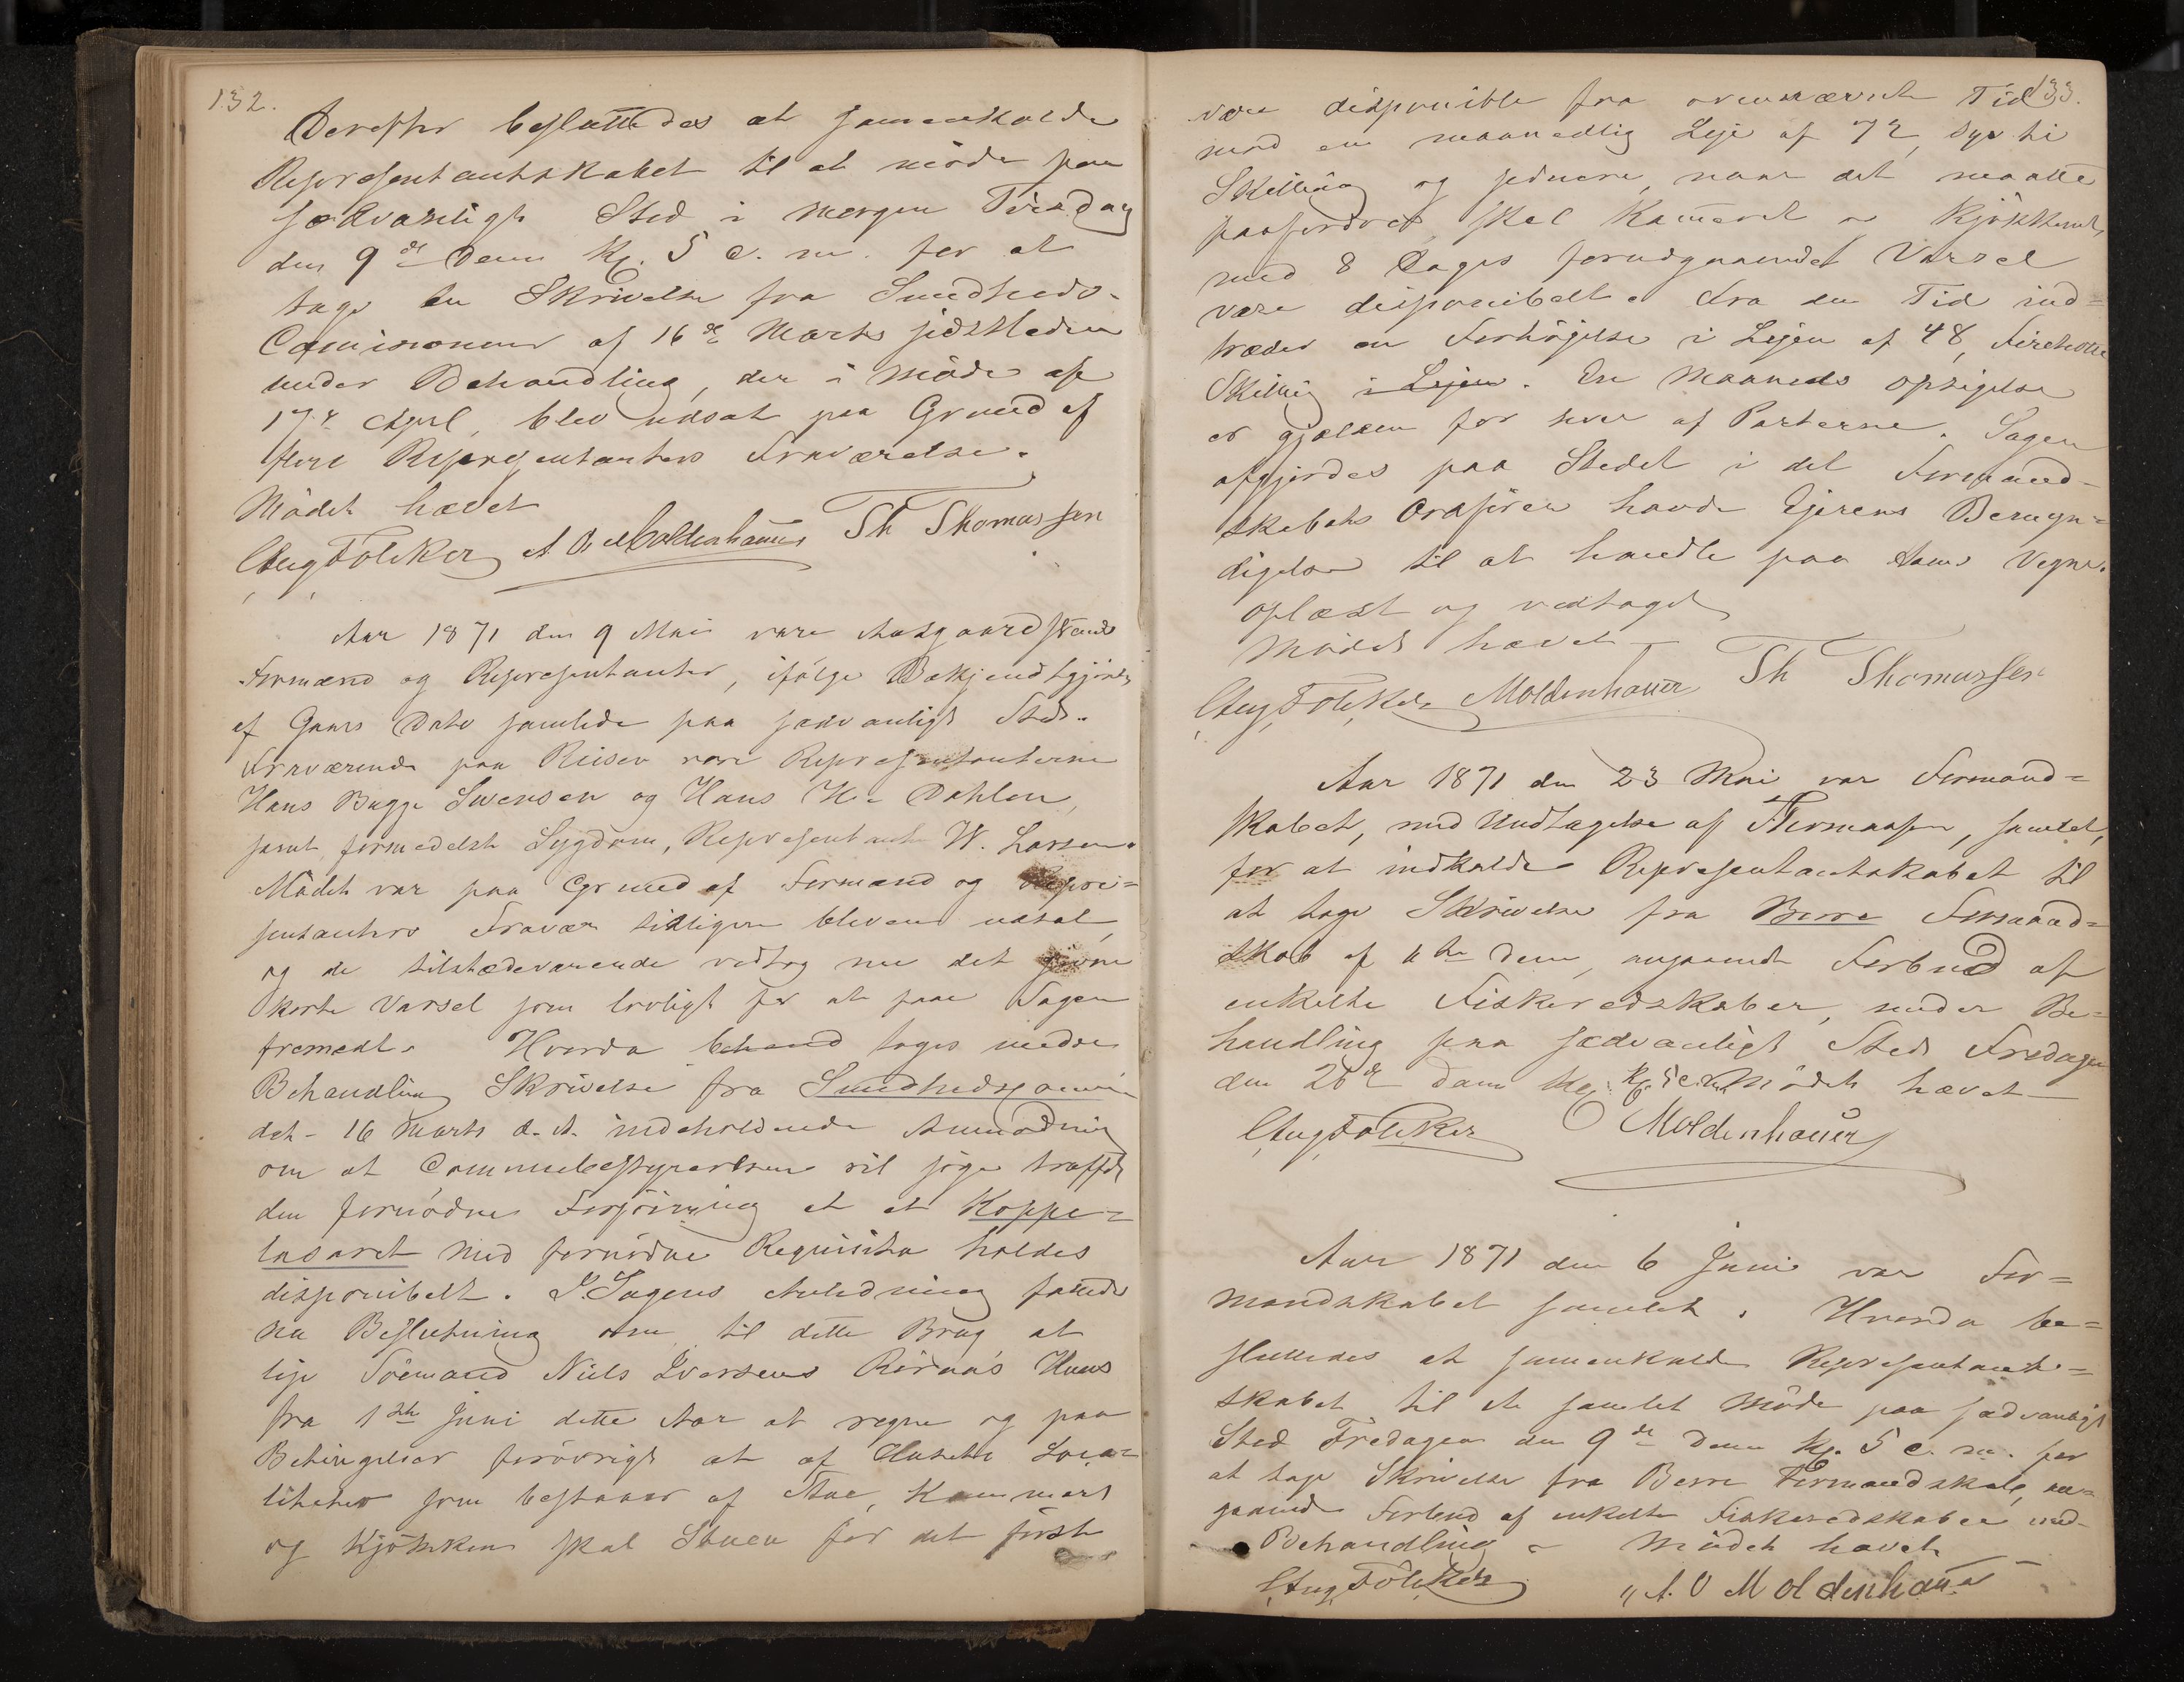 132.
Derefter besluttedes at samenkalde
Representantskabet til at möde paa
sædvanligt Sted i morgen Tirsdag
den 9de Denn Kl. 5 e. m. for at
tage en Skrivelse fra Sundheds-
Comisionen af 16de Marts sidstleden
under Behandling, der i Möde af
17de April, blev udsat paa Grund af
flere Representanters Fraværelse.
Mödet hævet
Aug Fölcker A O Moldenhauer Th Thomassen
Aar 1871 den 9 Mai vare Aasgaardstrands
Formænd og Representanter, ifölge Bekjendtgjörelse
af Gaars Dato samlede paa sædvanligt Sted.
Fraværende paa Reiser vare Representanterne
Hans Bugge Svensen og Hans H. Dahlen,
samt formedelst Sygdom, Representant W. Larsen.
Mödet var paa Grund af Formænd og Repre=
sentanters Fravær tidligere bleven udsat,
og de tilstædeværende vedtog nu det givne
korte Varsel som lovligt for at faae Sagen
fremædt. Hvorda toges under
Behandling Skrivelse fra Sundhedscomi-
dat. 16 Marts d. A. indeholdende Anmodning
om at Communebestyrerelsen vil söge truffet
den fornödne Forföining at et Koppe=
lasaret med fornödne Requisita holdes
disponibelt. I Sagens Anledning fattedes
na Beslutning om til dette Brug at
leje Sömand Niels Iversens Rörnæs Huus
fra 1ste Juni dette Aar at regne og paa
Betingelser forövrigt at af Husets Loca=
liteter som bestaaer af Stue, Kammers
og Kjökken skal Stuen for det förste
133.
være disponible fra ovennævnte Tid
mod en maanedlig Leje af 72, syv ti
Skilling og sednere, naar det maatte
paafordres skal Kameret og Kjökkenet,
med 8 Dages forudgaaendet Varsel
være disponibelt. Fra den Tid ind=
træder en Forhöjelse i Lejen af 48, Fireotte
Skilling i Lejen. En Maaneds opsigelse
er gjælden for hver af Parterne. Sagen
afgjordes paa Stedet i det Formand-
skabets Ordförer havde Ejerens Bemyn=
digelse til at handle paa Hans Vegne.
oplæst og vedtaget
Mödet hævet
Aug Fölcker Moldenhauer Th Thomassen
Aar 1871 den 23 Mai var Formand=
skabet, med Undtagelse af Thomassen, samlet,
for at indkalde Representantskabet til
at tage Skrivelse fra Borre Formand=
skab af 11te Denn, angaaende Forbud af
enkelte Fiskeredskaber, under Be=
handling paa sædvanligt Sted Fredagen
den 26de Denn Kl. 5 e. m. Mödet hævet
Aug Fölcker Moldenhauer
Aar 1871 den 6 Juni var For=
mandskabet samlet. Hvorda be=
sluttedes at samenkalde Representant=
skabet til et samlet Möde paa sædvanligt
Sted Fredagen den 9de Denn Kl. 5 e. m. for
at tage Skrivelse fra Borre Formandskab, an=
gaaende Forbud af enkelte Fiskeredskaber und-
Behandling. Mödet hævet
Aug Fölcker A. O Moldenhauer